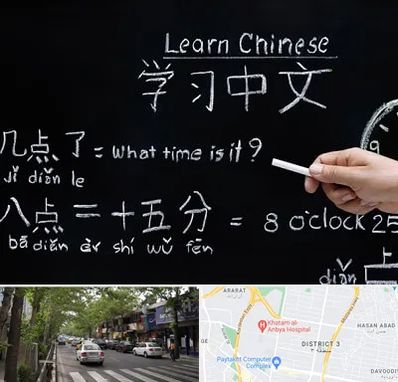 Learn Chinese
学习中文
几点了 = What time is it?
jǐ diǎn le
八点二十五分 = 8 o'clock 25
bā diǎn èr shí wǔ fēn
diǎn
9
ARARAT
Khatam al-
Anbya Hospital
DISTRICT 3
منطقه ۳
HASAN ABAD
Paytakht Computer
Complex
DAVOODI